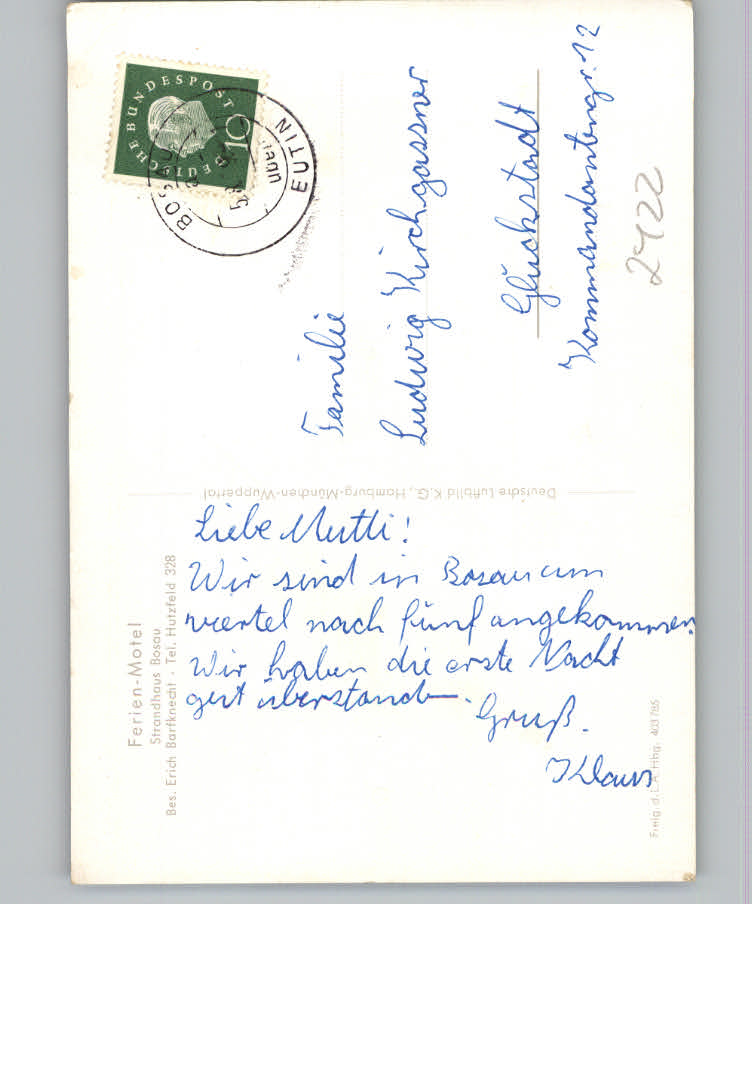 Ferien-Motel
Strandhaus Bosau
Bes. Erich Barfknecht - Tel. Hutzfeld 328
Liebe Mutti!
Wir sind in Bosau um
viertel nach fünf angekommen.
Wir haben die erste Nacht
gut überstanden.
Gruß.
Klaus
Deutsche Luftbild K.G., Hamburg-München-Wuppertal
Freig. d. L.A. Hbg. 403/85
DEUTSCHE BUNDESPOST
10
EUTIN
Familie
Ludwig Kirchgassner
Glückstadt
Kommandantengr. 12
2422